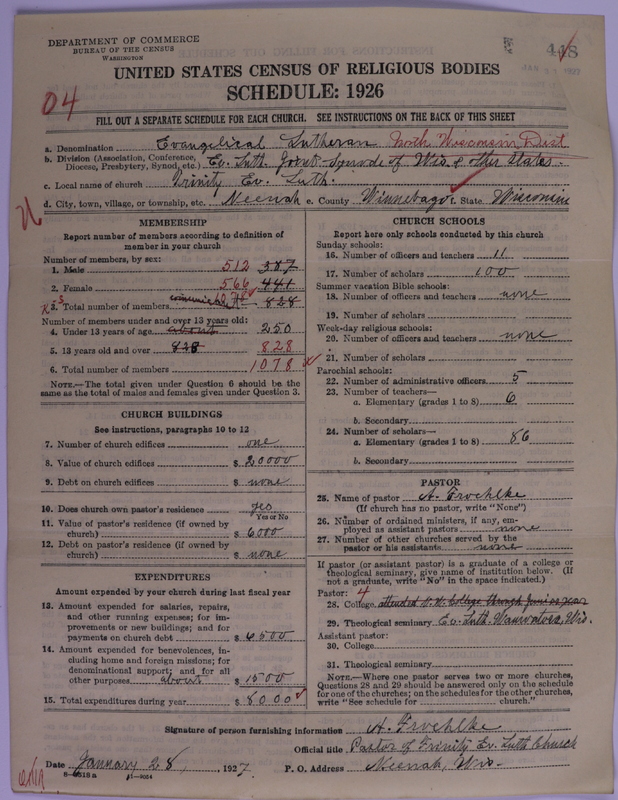 DEPARTMENT OF COMMERCE
BUREAU OF THE CENSUS
WASHINGTON
UNITED STATES CENSUS OF RELIGIOUS BODIES
SCHEDULE: 1926
04
FILL OUT A SEPARATE SCHEDULE FOR EACH CHURCH. SEE INSTRUCTIONS ON THE BACK OF THIS SHEET
a. Denomination Evangelical Lutheran North Wisconsin Dist
b. Division (Association, Conference, Diocese, Presbytery, Synod, etc.) Ev. Luth. Joint Synod of Wis. & other States.
c. Local name of church Trinity Ev. Luth.
d. City, town, village, or township, etc. Neenah e. County Winnebago f. State Wisconsin
MEMBERSHIP
Report number of members according to definition of member in your church
Number of members, by sex:
1. Male 512 387
2. Female 566 441
3. Total number of members 828
Number of members under and over 13 years old:
4. Under 13 years of age about 250
5. 13 years old and over 828 828
6. Total number of members 1078
NOTE.—The total given under Question 6 should be the same as the total of males and females given under Question 3.
CHURCH BUILDINGS
See instructions, paragraphs 10 to 12
7. Number of church edifices one
8. Value of church edifices $ 20000
9. Debt on church edifices $ none
10. Does church own pastor's residence yes
Yes or No
11. Value of pastor's residence (if owned by church) $ 6000
12. Debt on pastor's residence (if owned by church) $ none
EXPENDITURES
Amount expended by your church during last fiscal year
13. Amount expended for salaries, repairs, and other running expenses; for improvements or new building; and for payments on church debt $ 6500
14. Amount expended for benevolences, including home and foreign missions; for denominational support; and for all other purposes about $ 1500
15. Total expenditures during year $ 8000
CHURCH SCHOOLS
Report here only schools conducted by this church
Sunday schools:
16. Number of officers and teachers 11
17. Number of scholars 100
Summer vacation Bible schools:
18. Number of officers and teachers none
19. Number of scholars
Week-day religious schools:
20. Number of officers and teachers none
21. Number of scholars
Parochial schools:
22. Number of administrative officers 5
23. Number of teachers—
a. Elementary (grades 1 to 8) 6
b. Secondary
24. Number of scholars—
a. Elementary (grades 1 to 8) 86
b. Secondary
PASTOR
25. Name of pastor A. Froehlke
(If church has no pastor, write "None")
26. Number of ordained ministers, if any, employed as assistant pastors none
27. Number of other churches served by the pastor or his assistants none
If pastor (or assistant pastor) is a graduate of a college or theological seminary, give name of institution below. (If not a graduate, write "No" in the space indicated.)
Pastor: 4
28. College attended N.W. College through Junior year
29. Theological seminary Ev. Luth. Wauwatosa, Wis.
Assistant pastor:
30. College
31. Theological seminary
NOTE.—Where one pastor serves two or more churches, Questions 28 and 29 should be answered only on the schedule for one of the churches; on the schedules for the other churches, write "See schedule for church."
Signature of person furnishing information A. Froehlke
Official title Pastor of Trinity Ev. Luth Church
Date January 28, 1927 P. O. Address Neenah, Wis.
8-6318a 11-9034